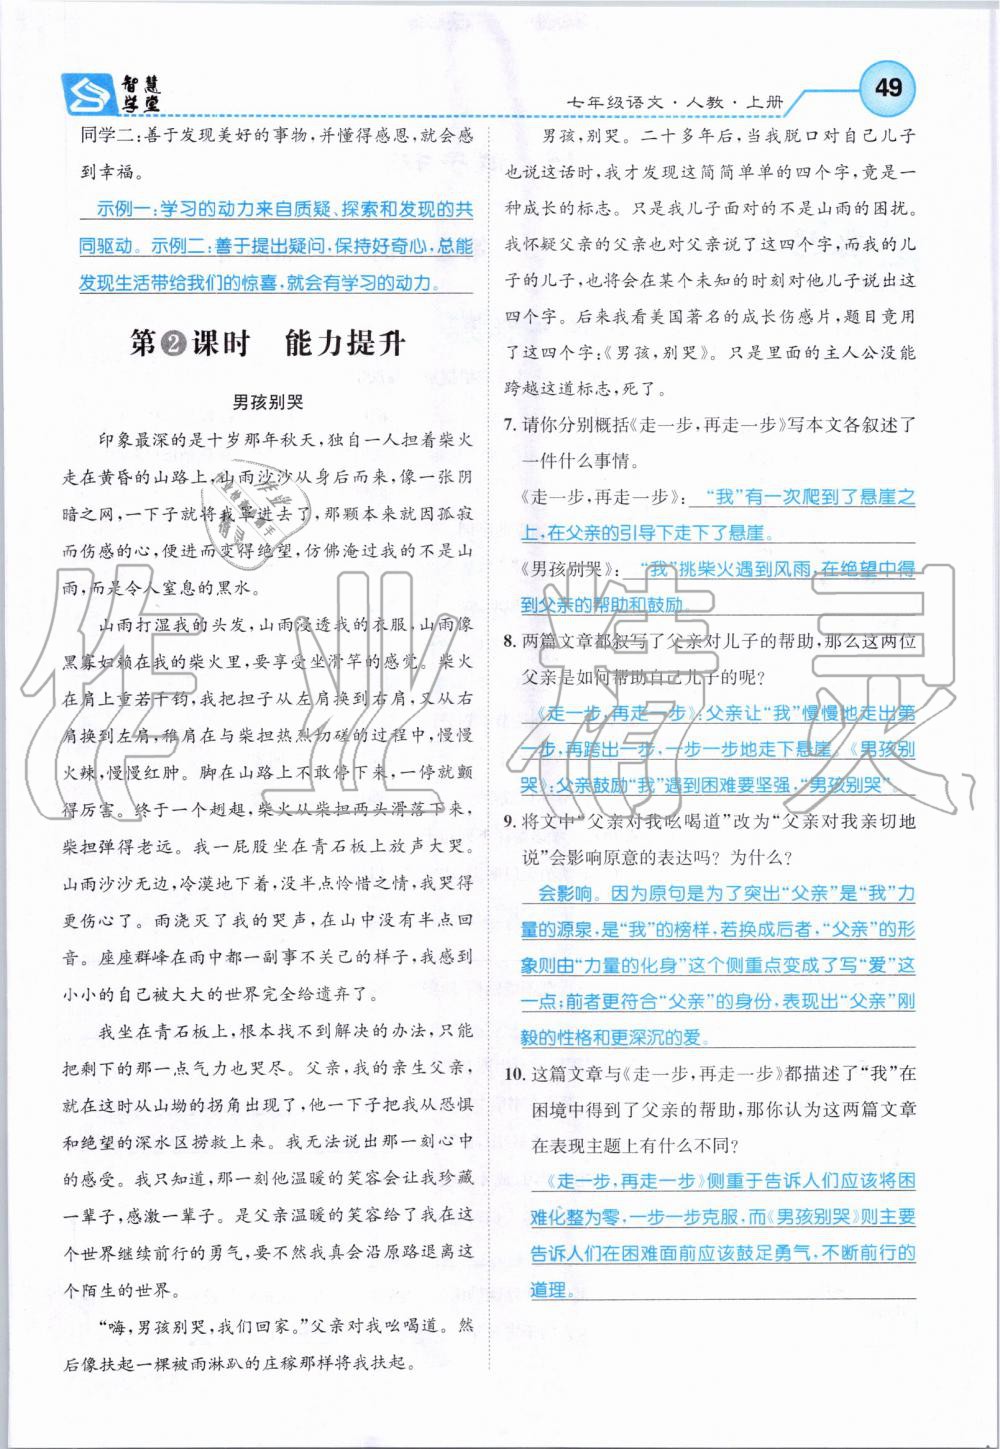 智慧学堂
七年级语文·人教·上册
49
同学二:善于发现美好的事物,并懂得感恩,就会感
到幸福。
示例一:学习的动力来自质疑、探索和发现的共
同驱动。示例二:善于提出疑问,保持好奇心,总能
发现生活带给我们的惊喜,就会有学习的动力。
第2课时 能力提升
男孩别哭
印象最深的是十岁那年秋天,独自一人担着柴火
走在黄昏的山路上,山雨沙沙从身后而来,像一张阴
暗之网,一下子就将我罩进去了,那颗本就因孤寂
而伤感的心,便进而变得绝望,仿佛淹过我的不是山
雨,而是令人窒息的黑水。
山雨打湿我的头发,山雨浸透我的衣服,山雨像
黑寡妇赖在我的柴火里,要享受坐滑竿的感觉。柴火
在肩上重若千钧,我把担子从左肩换到右肩,又从右
肩换到左肩,稚肩在与柴担热烈切磋的过程中,慢慢
火辣,慢慢红肿。脚在山路上不敢停下来,一停就颤
得厉害。终于一个趔趄,柴火从柴担两头滑落下来,
柴担弹得老远。我一屁股坐在青石板上放声大哭。
山雨沙沙无边,冷漠地下着,没半点怜惜之情,我哭得
更伤心了。雨浇灭了我的哭声,在山中没有半点回
音。座座群峰在雨中都一副事不关己的样子,我感到
小小的自己被大大的世界完全给遗弃了。
我坐在青石板上,根本找不到解决的办法,只能
把剩下的那一点气力也哭尽。父亲,我的亲生父亲,
就在这时从山坳的拐角出现了,他一下子把我从恐惧
和绝望的深水区捞救上来。我无法说出那一刻心中
的感受。我只知道,那一刻他温暖的笑容会让我珍藏
一辈子,感激一辈子。是父亲温暖的笑容给了我在这
个世界继续前行的勇气,要不然我真会沿原路退离这
个陌生的世界。
“嗨,男孩别哭,我们回家。”父亲对我吆喝道。然
后像扶起一棵被雨淋趴的庄稼那样将我扶起。
男孩,别哭。二十多年后,当我脱口对自己儿子
也说这话时,我才发现这简简单单的四个字,竟是一
种成长的标志。只是我儿子面对的不是山雨的困扰。
我怀疑父亲的父亲也对父亲说了这四个字,而我的儿
子的儿子,也将会在某个未知的时刻对他儿子说出这
四个字。后来我看美国著名的成长伤感片,题目竟用
了这四个字:《男孩,别哭》。只是里面的主人公没能
跨越这道标志,死了。
7. 请你分别概括《走一步,再走一步》写本文各叙述了
一件什么事情。
《走一步,再走一步》: “我”有一次爬到了悬崖之
上,在父亲的引导下走下了悬崖。
《男孩别哭》: “我”挑柴火遇到风雨,在绝望中得
到父亲的帮助和鼓励。
8. 两篇文章都叙写了父亲对儿子的帮助,那么这两位
父亲是如何帮助自己儿子的呢?
《走一步,再走一步》:父亲让“我”慢慢地走出第
一步,再跨出一步,一步一步地走下悬崖。《男孩别
哭》:父亲鼓励“我”遇到困难要坚强,“男孩别哭”
9. 将文中“父亲对我吆喝道”改为“父亲对我亲切地
说”会影响原意的表达吗?为什么?
会影响。因为原句是为了突出“父亲”是“我”力
量的源泉,是“我”的榜样,若换成后者,“父亲”的形
象则由“力量的化身”这个侧重点变成了写“爱”这
一点;前者更符合“父亲”的身份,表现出“父亲”刚
毅的性格和更深沉的爱。
10. 这篇文章与《走一步,再走一步》都描述了“我”在
困境中得到了父亲的帮助,那你认为这两篇文章
在表现主题上有什么不同?
《走一步,再走一步》侧重于告诉人们应该将困
难化整为零,一步一步克服,而《男孩别哭》则主要
告诉人们在困难面前应该鼓足勇气,不断前行的
道理。
作业精灵